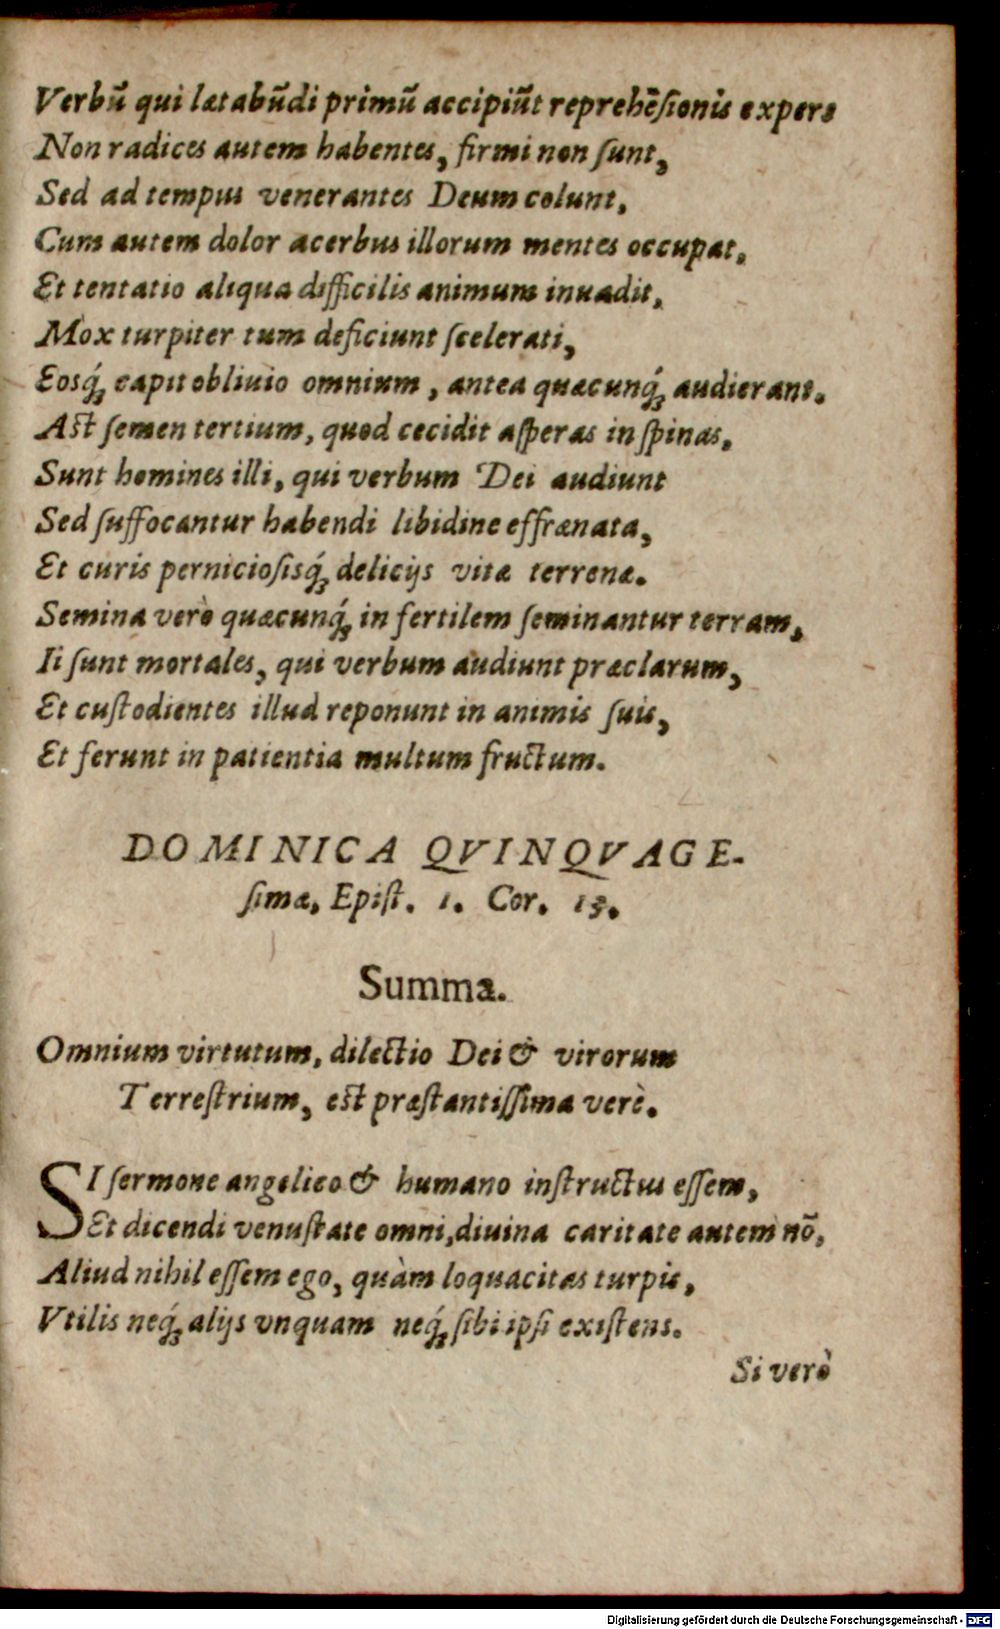 Verbũ qui lætabũdi primũ accipiũt reprehẽsionis expers
Non radices autem habentes, firmi non ſunt,
Sed ad tempus venerantes Deum colunt,
Cum autem dolor acerbus illorum mentes occupat,
Et tentatio aliqua difficilis animum inuadit,
Mox turpiter tum deficiunt ſcelerati,
Eosq́; capit obliuio omnium, antea quæcunq́; audierant.
Aſt ſemen tertium, quod cecidit aſperas in ſpinas,
Sunt homines illi, qui verbum Dei audiunt
Sed ſuffocantur habendi libidine effrænata,
Et curis pernicioſisq́; delicijs vitæ terrenæ.
Semina verò quæcunq́; in fertilem ſeminantur terram,
Ii ſunt mortales, qui verbum audiunt præclarum,
Et cuſtodientes illud reponunt in animis ſuis,
Et ferunt in patientia multum fructum.
DOMINICA QVINQVAGE-
ſimæ, Epiſt. 1. Cor. 13.
Summa.
Omnium virtutum, dilectio Dei & virorum
Terreſtrium, eſt præſtantiſſima verè.
SI ſermone angelico & humano inſtructus eſſem,
Et dicendi venuſtate omni, diuina caritate autem nõ,
Aliud nihil eſſem ego, quàm loquacitas turpis,
Vtilis neq́; alijs vnquam neq́; ſibi ipſi exiſtens.
Si verò
Digitalisierung gefördert durch die Deutsche Forschungsgemeinschaft - DFG